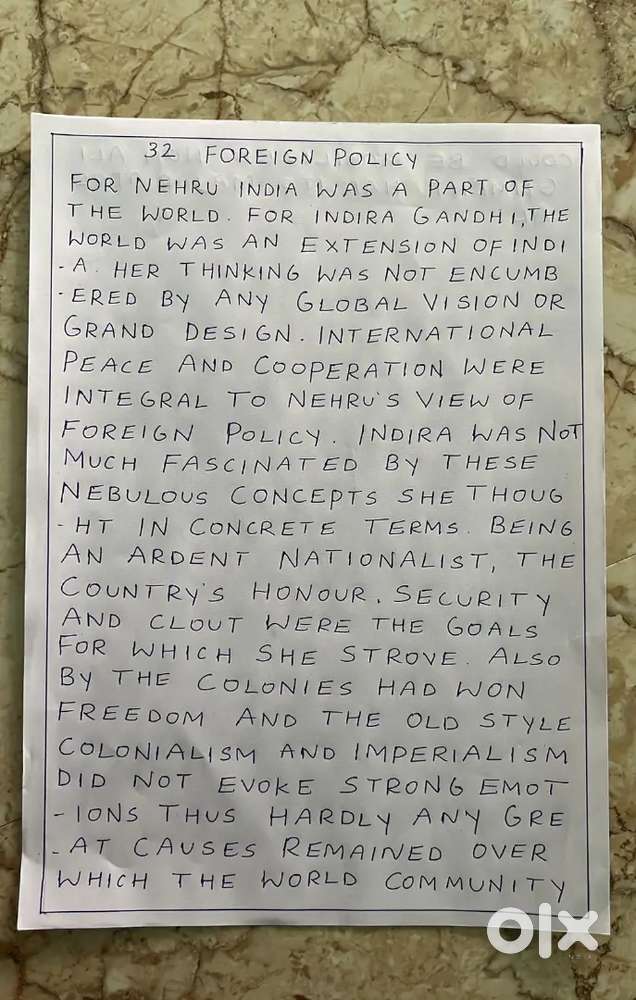 32 FOREIGN POLICY
FOR NEHRU INDIA WAS A PART OF
THE WORLD. FOR INDIRA GANDHI, THE
WORLD WAS AN EXTENSION OF INDI
-A. HER THINKING WAS NOT ENCUMB
-ERED BY ANY GLOBAL VISION OR
GRAND DESIGN. INTERNATIONAL
PEACE AND COOPERATION WERE
INTEGRAL TO NEHRU'S VIEW OF
FOREIGN POLICY. INDIRA WAS NOT
MUCH FASCINATED BY THESE
NEBULOUS CONCEPTS SHE THOUG
-HT IN CONCRETE TERMS. BEING
AN ARDENT NATIONALIST, THE
COUNTRY'S HONOUR, SECURITY
AND CLOUT WERE THE GOALS
FOR WHICH SHE STROVE. ALSO
BY THE COLONIES HAD WON
FREEDOM AND THE OLD STYLE
COLONIALISM AND IMPERIALISM
DID NOT EVOKE STRONG EMOT
-IONS THUS HARDLY ANY GRE
-AT CAUSES REMAINED OVER
WHICH THE WORLD COMMUNITY
olx
INDIA